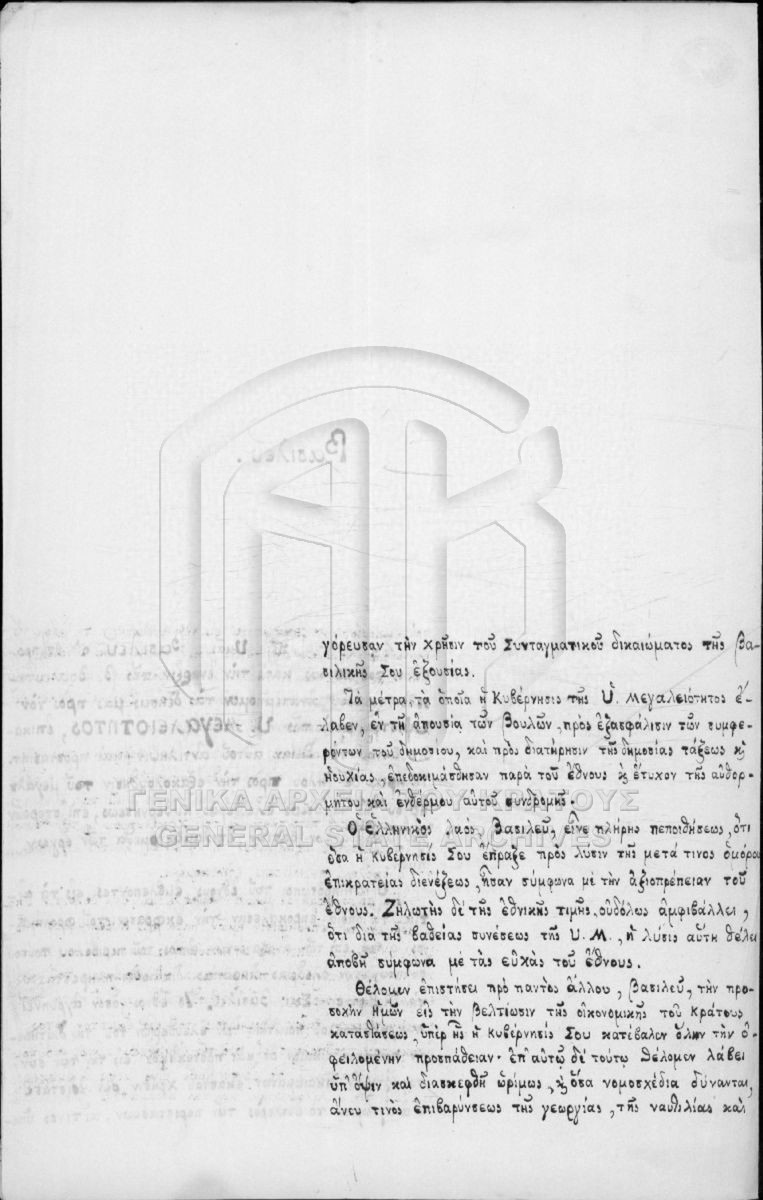 γόρευσαν τὴν χρῆσιν τοῦ Συνταγματικοῦ δικαιώματος τῆς βα-
σιλικῆς Σου ἐξουσίας.
Τὰ μέτρα, τὰ ὁποῖα ἡ Κυβέρνησις τῆς Ὑ. Μεγαλειότητος ἔ-
λαβεν, ἐν τῇ ἀπουσίᾳ τῶν Βουλῶν, πρὸς ἐξασφάλισιν τῶν συμφε-
ρόντων τοῦ δημοσίου, καὶ πρὸς διατήρησιν τῆς δημοσίας τάξεως κ
ἡσυχίας, ἐπεδοκιμάσθησαν παρὰ τοῦ ἔθνους κ ἔτυχον τῆς αὐθορ-
μήτου καὶ ἐνθέρμου αὐτοῦ συνδρομῆς.
Ὁ ἑλληνικὸς λαὸς, Βασιλεῦ, εἶνε πλήρης πεποιθήσεως, ὅτι
ὅσα ἡ Κυβέρνησίς Σου ἔπραξε πρὸς λύσιν τῆς μετά τινος ὁμόρου
ἐπικρατείας διενέξεως, ἦσαν σύμφωνα μὲ τὴν ἀξιοπρέπειαν τοῦ
ἔθνους. Ζηλωτὴς δὲ τῆς ἐθνικῆς τιμῆς, οὐδόλως ἀμφιβάλλει,
ὅτι διὰ τῆς βαθείας συνέσεως τῆς Υ.Μ., ἡ λύσις αὕτη θέλει
ἀποβῆ σύμφωνα με τὰς εὐχὰς τοῦ ἔθνους.
Θέλομεν ἐπιστήσει πρὸ παντὸς ἄλλου, βασιλεῦ, τὴν προ-
σοχὴν ἡμῶν εἰς τὴν βελτίωσιν τῆς οἰκονομικῆς τοῦ Κράτους
καταστάσεως, ὑπὲρ ἧς ἡ Κυβέρνησίς Σου κατέβαλεν ὅλην τὴν ὀ-
φειλομένην προσπάθειαν· ἐπ' αὐτῷ δὲ τούτῳ θέλομεν λάβει
ὑπ' ὄψιν καὶ διασκεφθῆ ὡρίμως, κ ὅσα νομοσχέδια δύνανται,
ἄνευ τινὸς ἐπιβαρύνσεως τῆς γεωργίας, τῆς ναυτιλίας καὶ
ΓΕΝΙΚΑ ΑΡΧΕΙΑ ΤΟΥ ΚΡΑΤΟΥΣ
GENERAL STATE ARCHIVES